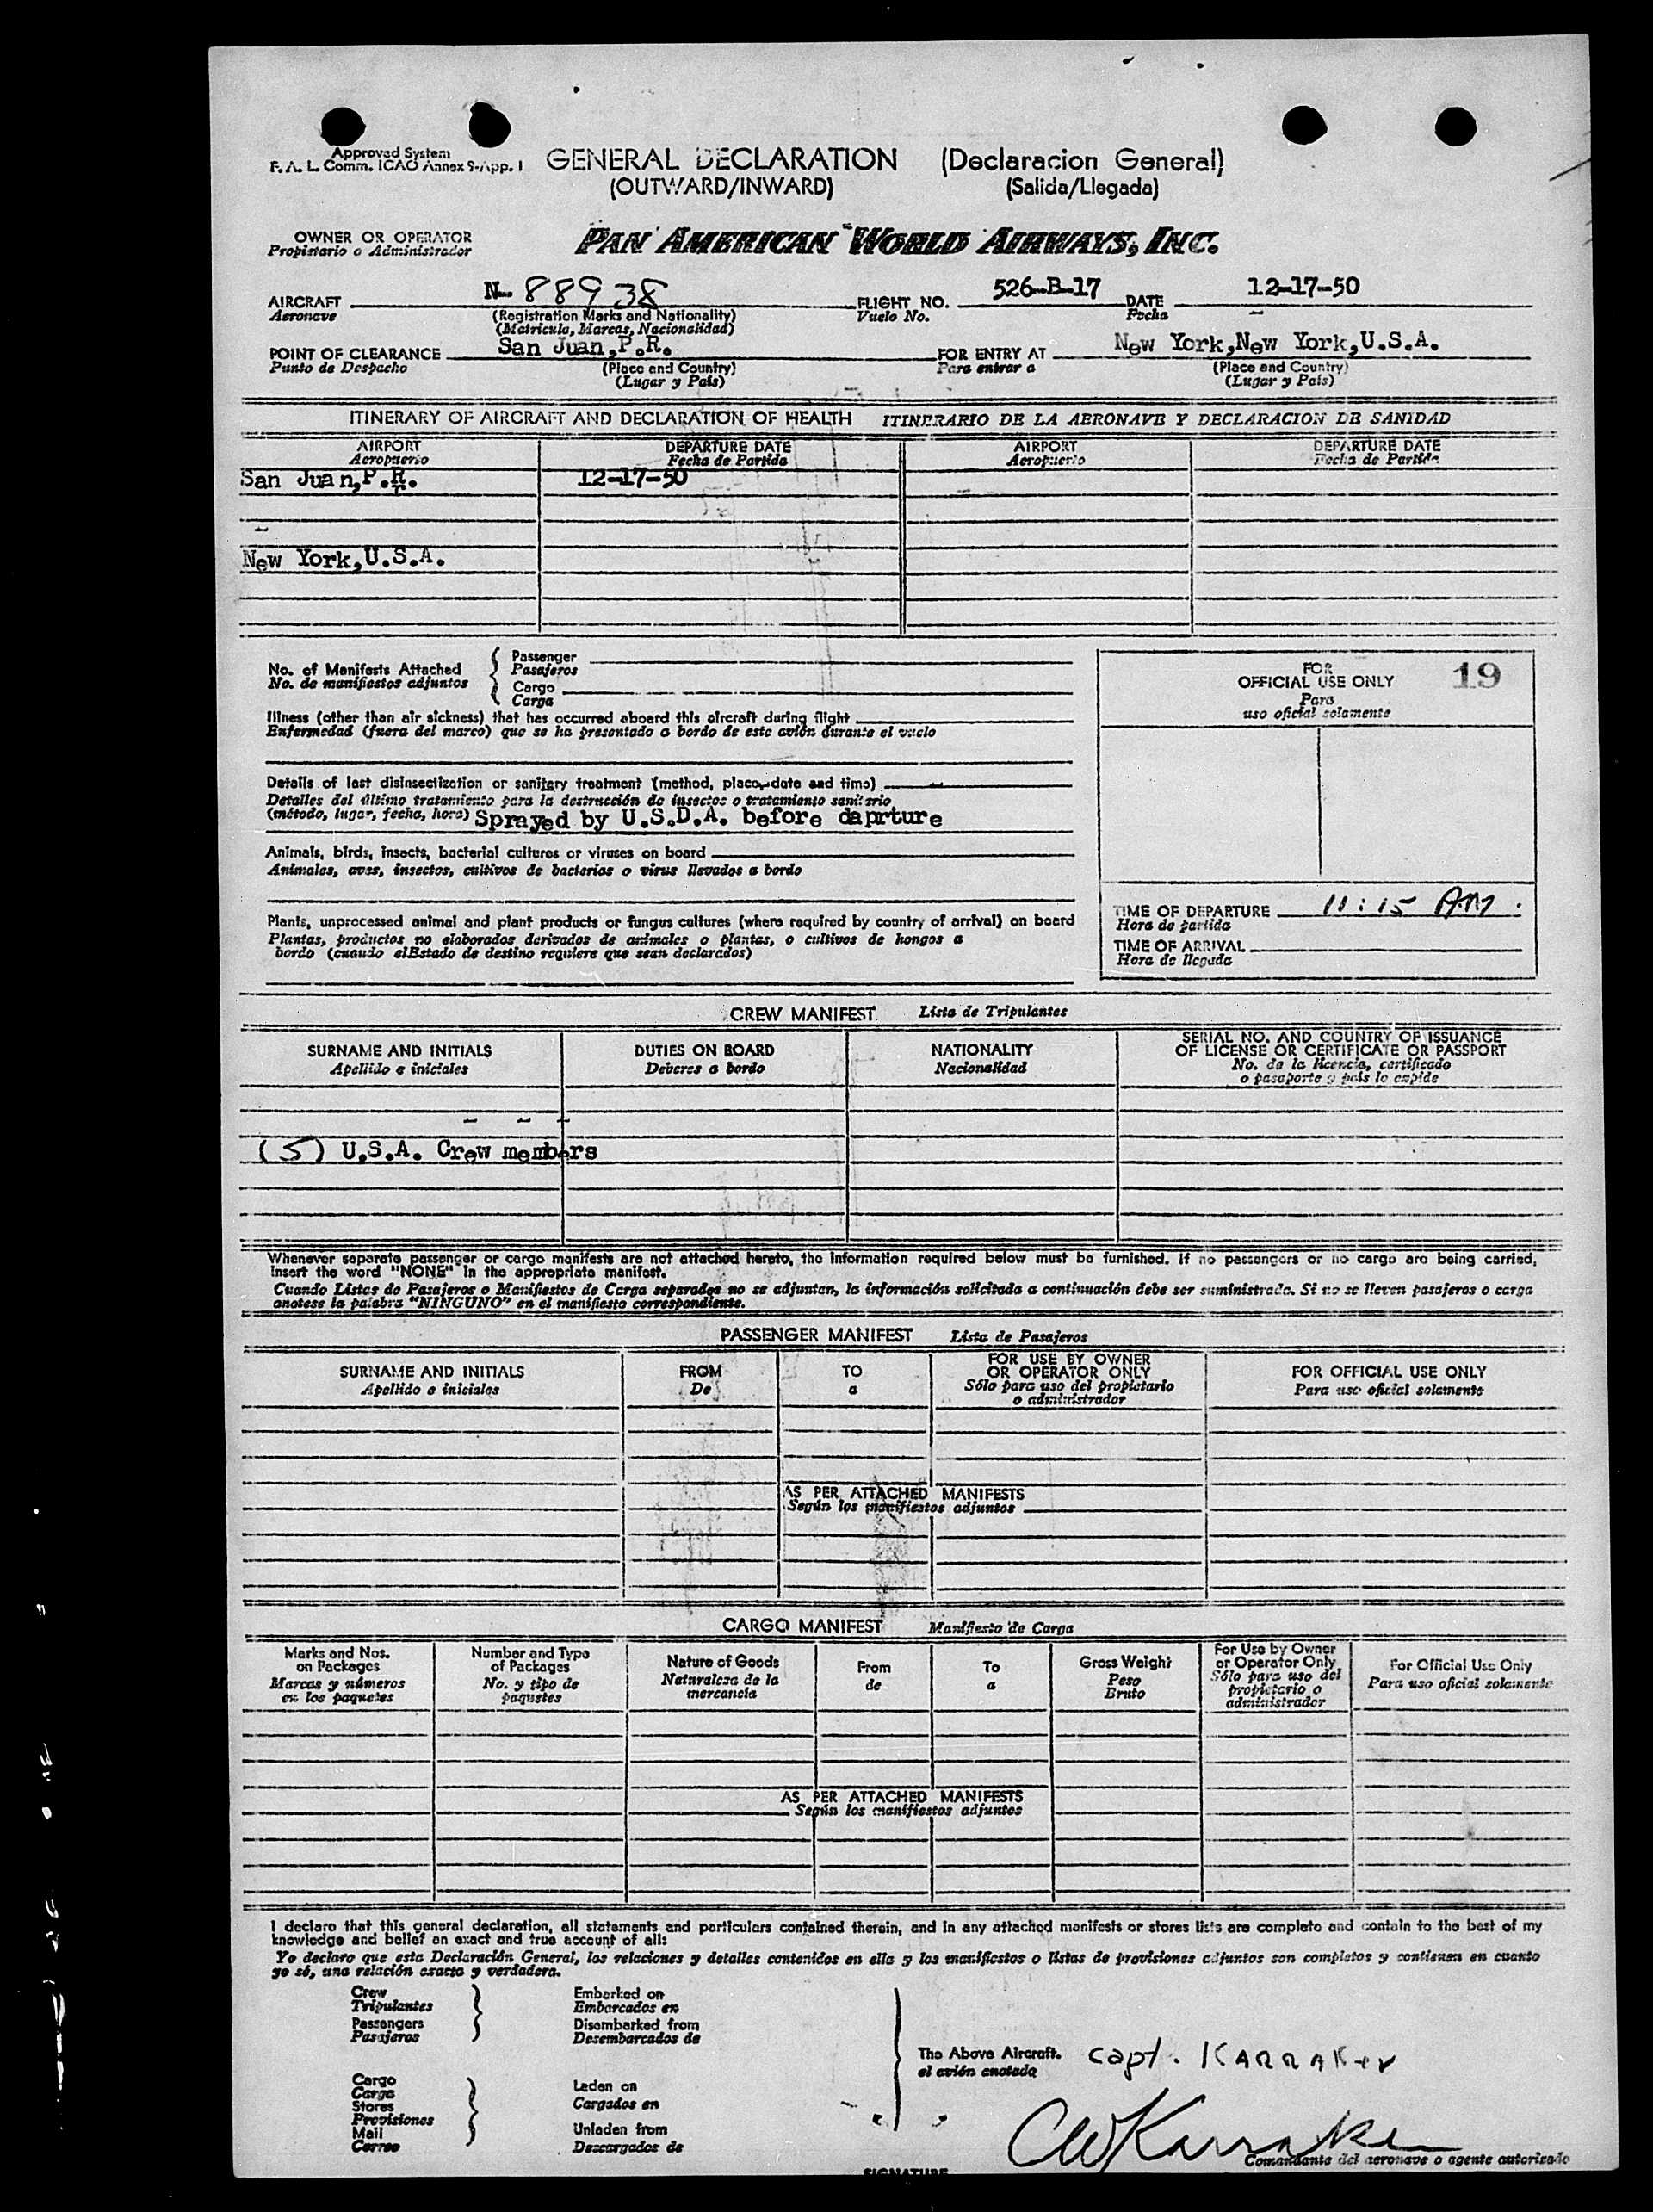 Approved System
F. A. L. Comm. ICAO Annex 9-App. 1
GENERAL DECLARATION (Declaracion General)
(OUTWARD/INWARD) (Salida/Llegada)
OWNER OR OPERATOR
Propietario o Administrador
PAN AMERICAN WORLD AIRWAYS, INC.
AIRCRAFT N-88938 FLIGHT NO. 526-B-17 DATE 12-17-50
Aeronave (Registration Marks and Nationality) Vuelo No. Fecha
(Matricula, Marcas, Nacionalidad)
POINT OF CLEARANCE San Juan,P.R. FOR ENTRY AT New York,New York,U.S.A.
Punto de Despacho (Place and Country) Para entrar a (Place and Country)
(Lugar y País) (Lugar y País)
ITINERARY OF AIRCRAFT AND DECLARATION OF HEALTH ITINERARIO DE LA AERONAVE Y DECLARACION DE SANIDAD
AIRPORT DEPARTURE DATE AIRPORT DEPARTURE DATE
Aeropuerto Fecha de Partida Aeropuerto Fecha de Partida
San Juan,P.R. 12-17-50
New York,U.S.A.
No. of Manifests Attached
No. de manifiestos adjuntos
Passenger
Pasajeros
Cargo
Carga
Illness (other than air sickness) that has occurred aboard this aircraft during flight
Enfermedad (fuera del mareo) que se ha presentado a bordo de este avión durante el vuelo
Details of last disinsectization or sanitary treatment (method, place, date and time)
Detalles del último tratamiento para la destrucción de insectos o tratamiento sanitario
(método, lugar, fecha, hora) Sprayed by U.S.D.A. before daprture
Animals, birds, insects, bacterial cultures or viruses on board
Animales, aves, insectos, cultivos de bacterias o virus llevados a bordo
Plants, unprocessed animal and plant products or fungus cultures (where required by country of arrival) on board
Plantas, productos no elaborados derivados de animales o plantas, o cultivos de hongos a
bordo (cuando elEstado de destino requiere que sean declarados)
FOR
OFFICIAL USE ONLY 19
Para
uso oficial solamente
TIME OF DEPARTURE 11:15 AM.
Hora de partida
TIME OF ARRIVAL
Hora de llegada
CREW MANIFEST Lista de Tripulantes
SURNAME AND INITIALS DUTIES ON BOARD NATIONALITY SERIAL NO. AND COUNTRY OF ISSUANCE
Apellido e iniciales Deberes a bordo Nacionalidad OF LICENSE OR CERTIFICATE OR PASSPORT
No. de la licencia, certificado
o pasaporte y país lo expide
(5) U.S.A. Crew members
Whenever separate passenger or cargo manifests are not attached hereto, the information required below must be furnished. If no passengers or no cargo are being carried,
insert the word "NONE" in the appropriate manifest.
Cuando Listas de Pasajeros o Manifiestos de Carga separados no se adjuntan, la información solicitada a continuación debe ser suministrada. Si no se lleven pasajeros o carga
anotese la palabra "NINGUNO" en el manifiesto correspondiente.
PASSENGER MANIFEST Lista de Pasajeros
SURNAME AND INITIALS FROM TO FOR USE BY OWNER FOR OFFICIAL USE ONLY
Apellido e iniciales De a OR OPERATOR ONLY Para uso oficial solamente
Sólo para uso del propietario
o administrador
AS PER ATTACHED MANIFESTS
Según los manifiestos adjuntos
CARGO MANIFEST Manifiesto de Carga
Marks and Nos. Number and Type Nature of Goods From To Gross Weight For Use by Owner For Official Use Only
on Packages of Packages Naturaleza de la de a Peso or Operator Only Para uso oficial solamente
Marcas y números No. y tipo de mercancía Bruto Sólo para uso del
en los paquetes paquetes propietario o
administrador
AS PER ATTACHED MANIFESTS
Según los manifiestos adjuntos
I declare that this general declaration, all statements and particulars contained therein, and in any attached manifests or stores lists are complete and contain to the best of my
knowledge and belief an exact and true account of all:
Yo declaro que esta Declaración General, las relaciones y detalles contenidos en ella y los manifiestos o listas de provisiones adjuntos son completos y contienen en cuanto
yo sé, una relación exacta y verdadera.
Crew Embarked on
Tripulantes Embarcados en
Passengers Disembarked from
Pasajeros Desembarcados de
The Above Aircraft. Capt. KARRAKer
el avión anotado
Cargo Laden on
Carga Cargados en
Stores
Provisiones
Mail Unladen from
Correo Descargados de
CW Karraker
Comandante del aeronave o agente autorizado
SIGNATURE